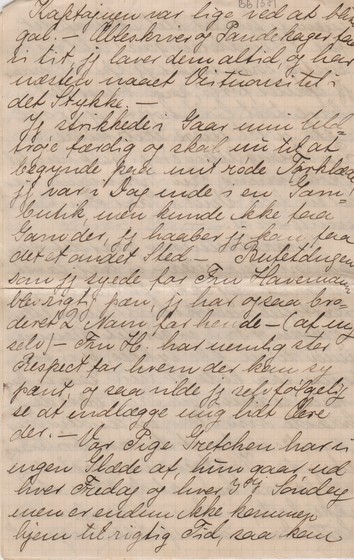 Kaptajnen var lige ved at bli
gal. – Æbleskiver og Pandekager faar
vi tit, jeg laver dem altid, og har
næsten naaet Virtuositet i
det Stykke. –
Jeg strikkede i Gaar min Uld-
trøje færdig og skal nu til at
begynde paa mit røde Tørklæde
jeg var i Dag inde i en Garn-
butik, men kunde ikke faa
Garn der, jeg haaber jeg kan faa
det et andet Sted. –
som jeg syede for Fru Havemann
blev rigtig pæn, jeg har ogsaa bro-
deret 2 Navn for hende – (af mig
selv) – Fru H. har nemlig stor
Respect for hvem der kan sy
pænt, og saa vilde jeg selvfølgelig
se at indlægge mig lidt Ære
der. – Vor Pige Gretchen har vi
ingen Glæde af, hun gaar ud
hver Fredag og hver 3die Søndag
men er endnu ikke kommen
hjem til rigtig Tid, saa kom